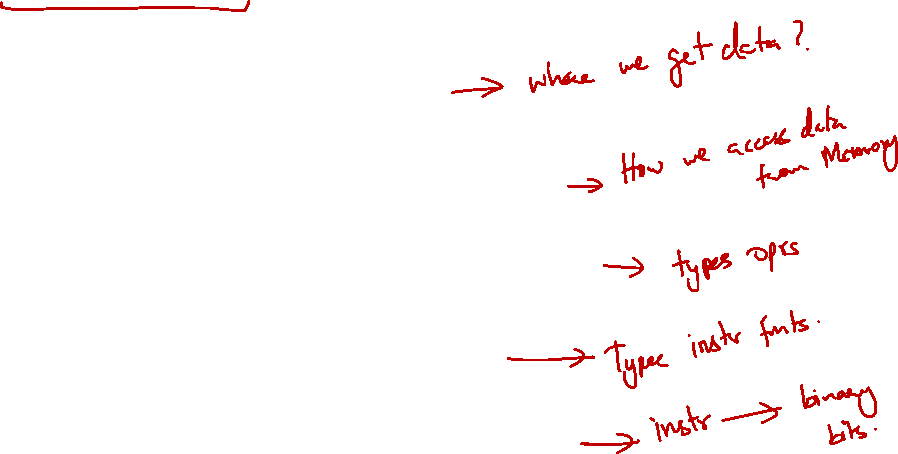 → where we get data?
→ How we access data
from Memory
→ types oprs
→ Types instr fmts.
→ instr → binary
bits.